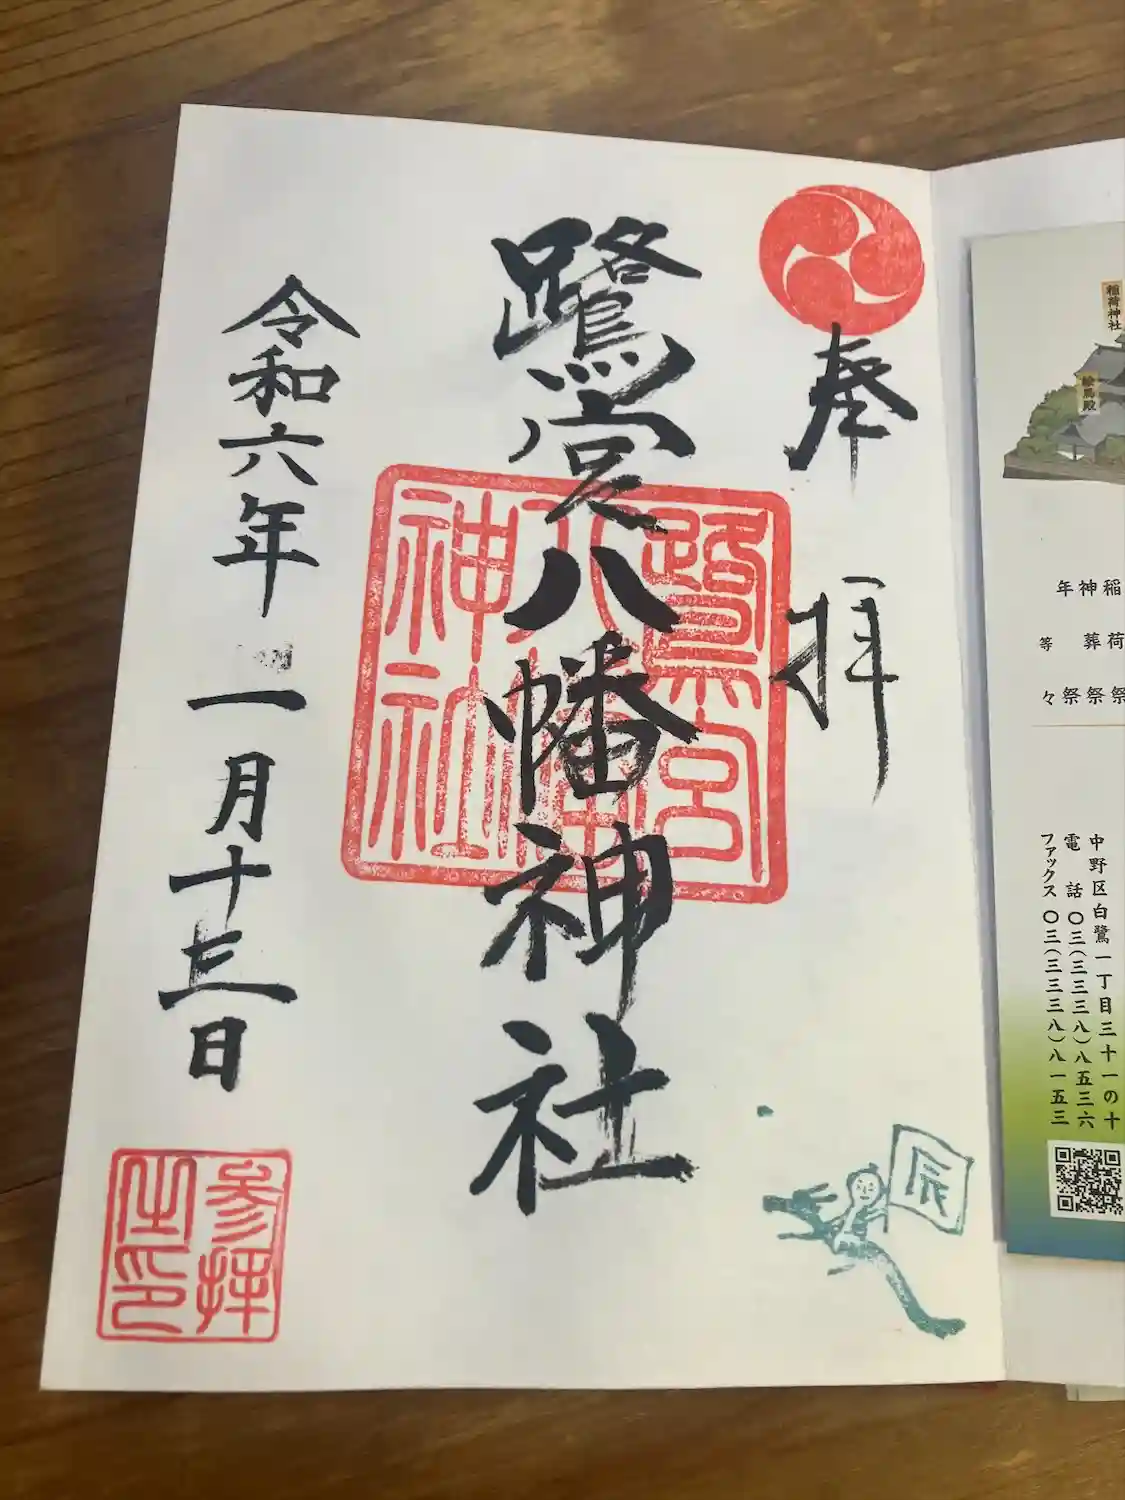 稲荷神社
絵馬殿
稲荷祭
神葬祭
年祭
等々
中野区白鷺一丁目三十一の十
電話〇三(三三三八)八五三六
ファックス〇三(三三三八)八一五三
奉拝
鷺宮八幡神社
鷺宮八幡神社
令和六年一月十三日
参拝之印
辰